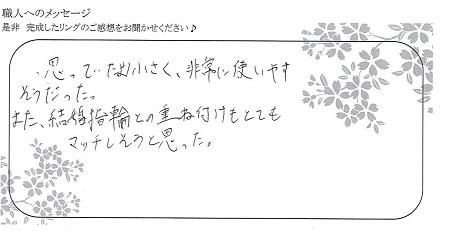 職人へのメッセージ
是非 完成したリングのご感想をお聞かせください♪
・思っていたより小さく、非常に使いやす
そうだった。
また、結婚指輪との重ね付けもとても
マッチしそうと思った。